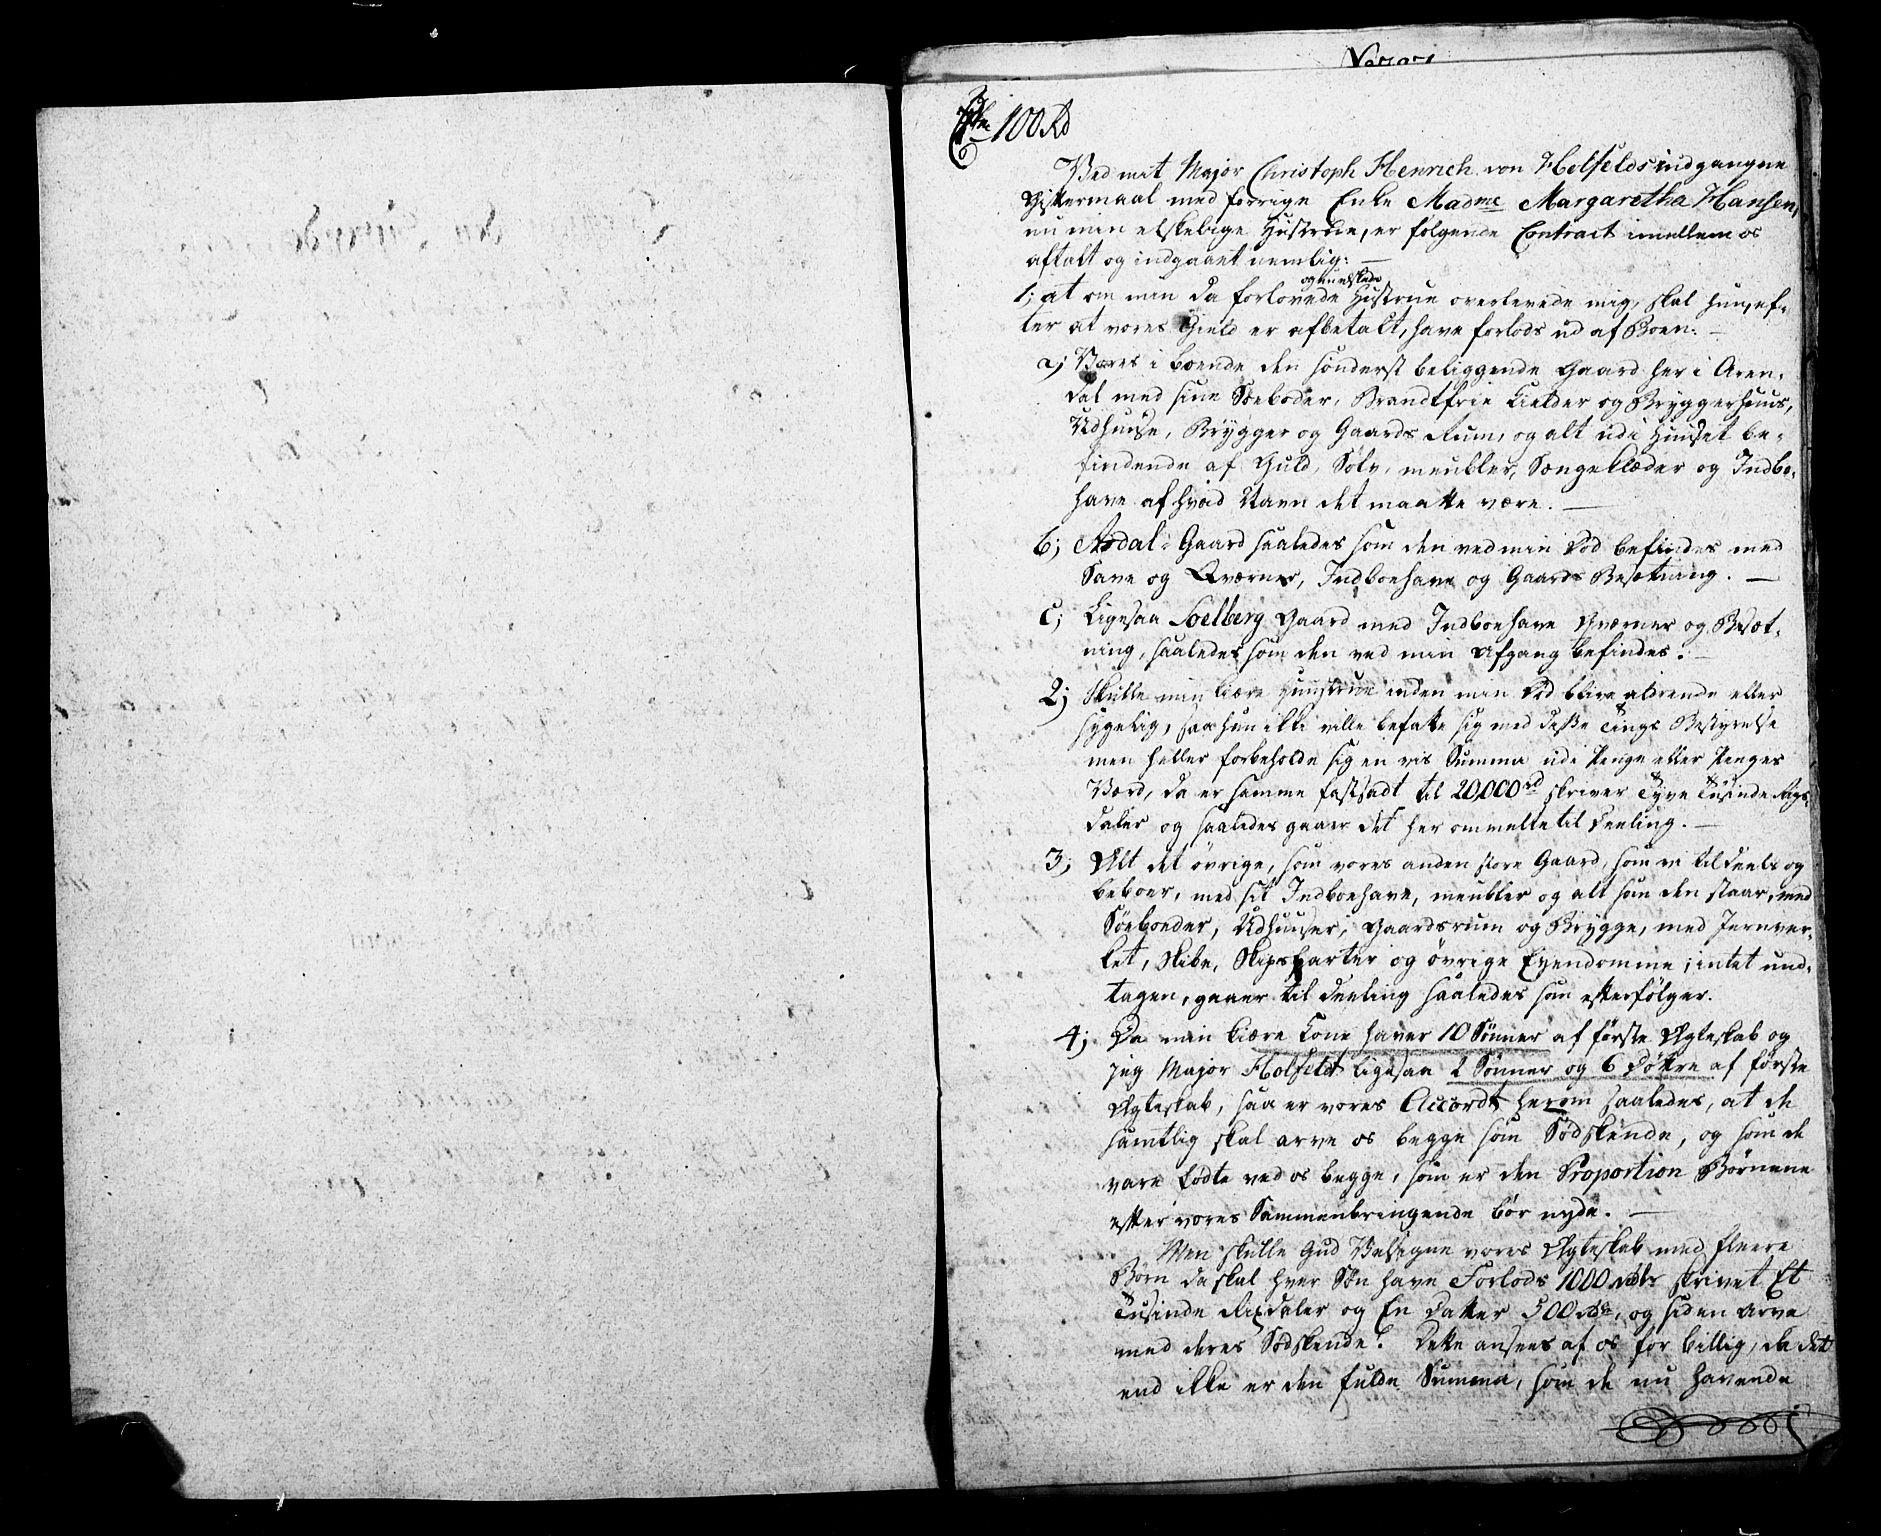 100 Rd
Ved mit Major Christoph Henrich von Holfelds indgangne
Gistermaal med forrige Enke Madme Margaretha Hansen,
nu min elskelige Hustrue, er følgende Contract imellem os
aftalt og indgaaet nemlig:
og nu ægte
1; at om min da forlovede Hustrue overlevede mig, skal hun, ef-
ter at vores Gield er afbetalt, have forlods ud af Boen:
a; Vores i boende den sønderst beliggende Gaard her i Aren-
dal med sine Søeboder, Brandtfrie Kielder og Bryggerhuus,
Udhuuse, Brygger og Gaards Rum, og alt udi Huuset be-
findende af Guld, Sølv, meubler, Sængeklæder og Indbo-
have af hvad Navn det maatte være.
b; Asdal-Gaard saaledes som den ved min Død befindes med
Save og Qværner, Indboehave og Gaards Besætning.
c; Ligesaa Soelberg Gaard med Indboehave Qværner og Besæt-
ning, saaledes som den ved min Afgang befindes.
2; Skulle min kiære Huustrue inden min Død blive aldrende eller
sygelig, saa hun ikke ville befatte sig med disse Tings Bestyrelse
men heller forbeholde sig en vis Summa udi Penge eller Penges
Værd, da er samme fastsadt til 20,000 rd skriver Tyve Tusinde Rigs-
daler og saaledes gaaer det her ommelte til Deeling.
3; Alt det øvrige, som vores anden store Gaard, som vi til Deels og
beboer, med sit Indboehave, meubler og alt som den staar, med
Søeboeder, Udhuuser, Gaardsrum og Brygge, med Jernver-
ket, Skibe, Skipsparter og øvrige Eyendomme, intet und-
tagen, gaaer til Deeling saaledes som efterfølger.
4; Da min kiære Kone haver 10 Sønner af første Ægteskab og
jeg Major Holfeldt ligesaa 2 Sønner og 6 Døttre af første
Ægteskab, saa er vores Accordt herom saaledes, at de
samtlig skal arve os begge som Sødskende, og som de
vare fødte ved os begge, som er den Proportion Børnene
efter vores Sammenbringende bør nyde.
Men skulle Gud Velsigne vores Ægteskab med fleere
Børn da skal hver Søn have Forlods 1000 rdlr skrivet Et
Tusinde Rixdaler og En Datter 500 rdlr, og siden arve
med deres Sødskende. Dette ansees af os for billig, da det
end ikke er den fulde Summa, som de nu havende